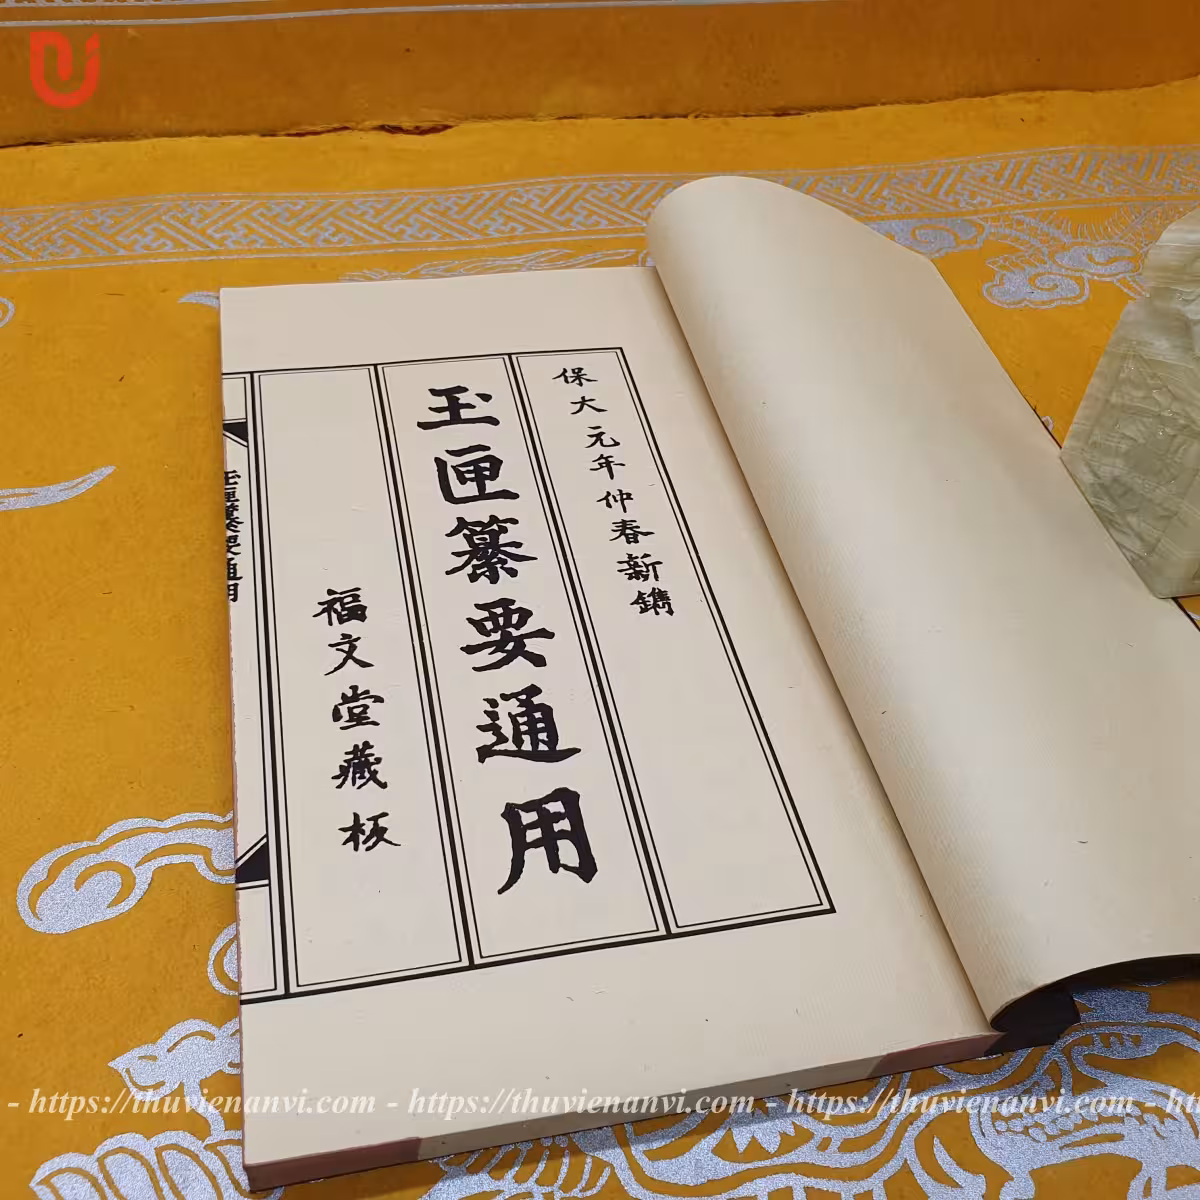 保大元年仲春新鐫
玉匣纂要通用
福文堂藏板
玉匣纂要通用
- https://thuvienanvi.com - https://thuvienanvi.com - https://thuvienanvi.com - ht